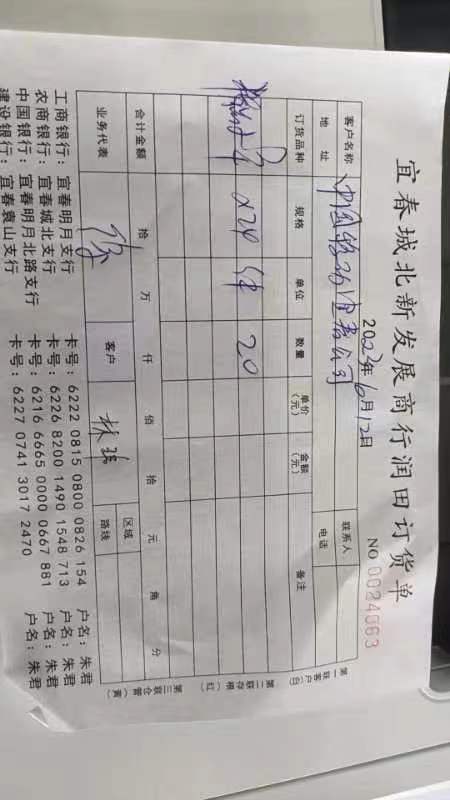 宜春城北新发展商行润田订货单
2023年6月12日
NO 0024663
客户名称 中国移动宜春公司 联系人
地址 电话
订货品种 规格 单位 数量 单价（元） 金额（元） 备注
x24 件 20
合计金额 拾 万 仟 佰 拾 元 角 分
业务代表 客户 区域
路线
第一联客户（白）
第二联存根（红）
第三联仓管（黄）
工商银行：宜春明月支行 卡号：6222 0815 0800 0826 154 户名：朱君
农商银行：宜春城北支行 卡号：6226 8200 1490 1548 713 户名：朱君
中国银行：宜春明月北路支行 卡号：6216 6665 0000 0667 881 户名：朱君
建设银行：宜春袁山支行 卡号：6227 0741 3017 2470 户名：朱君